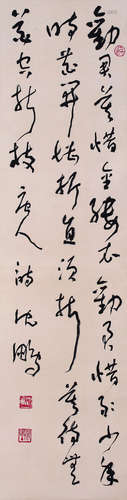 劝君莫惜金缕衣劝君惜取少年
时花开堪折直须折莫待无
花空折枝唐人诗沈鹏